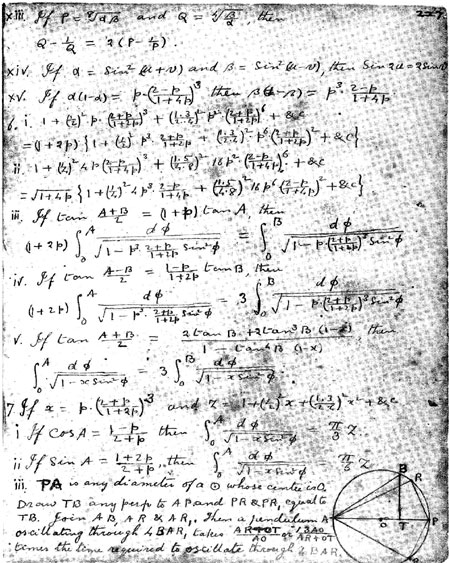 xiii. If P = ∜αβ and Q = ∜β/α, then 227
Q - 1/Q = 2(P - 1/P).
xiv. If α = sin²(u+v) and β = sin²(u-v), then sin 2u = 2 sin 2v
xv. If α(1-α) = p·((2-p)/(1+4p))³ then β(1-β) = p³·(2-p)/(1+4p)
6. i. 1 + (1/2)²·p·((2+p)/(1+2p))³ + (1·3/2·4)²·p²·((2+p)/(1+2p))⁶ + &c
= (1+2p) {1 + (1/2)² p³·(2+p)/(1+2p) + (1·3/2·4)²·p⁶((2+p)/(1+2p))² + &c}
ii. 1 + (1/4)² 4p((2-p)/(1+4p))³ + (1·5/4·8)² 16p²·((2-p)/(1+4p))⁶ + &c
= √(1+4p) {1 + (1/4)² 4p³·(2-p)/(1+4p) + (1·5/4·8)² 16p⁶((2-p)/(1+4p))² + &c}
iii. If tan (A+B)/2 = (1+p) tan A, then
(1+2p) ∫₀^A dφ/√(1 - p³·(2+p)/(1+2p) sin²φ) = ∫₀^B dφ/√(1 - p·((2+p)/(1+2p))³ sin²φ)
iv. If tan (A-B)/2 = (1-p)/(1+2p) tan B, then
(1+2p) ∫₀^A dφ/√(1 - p³·(2+p)/(1+2p) sin²φ) = 3 ∫₀^B dφ/√(1 - p·((2+p)/(1+2p))³ sin²φ)
v. If tan (A+B)/2 = (2 tan B + 2 tan³B (1-x))/(1 - tan⁴B (1-x)), then
∫₀^A dφ/√(1 - x sin²φ) = 3 ∫₀^B dφ/√(1 - x sin²φ).
7. If x = p·((2+p)/(1+2p))³ and z = 1 + (1/2)² x + (1·3/2·4)² x² + &c
i If cos A = (1-p)/(2+p) then ∫₀^A dφ/√(1 - x sin²φ) = π/3 z.
ii If sin A = (1+2p)/(2+p), then ∫₀^A dφ/√(1 - x sin²φ) = π/6 z
iii. PA is any diameter of a ⊙ whose centre is O,
Draw TB any perp to AP and PR & PR, equal to
TB. Join AB, AR & AR,. Then a pendulum
oscillating through 4 BAR, takes
times the time required to oscillate through 4 BAR.
A O T P B R